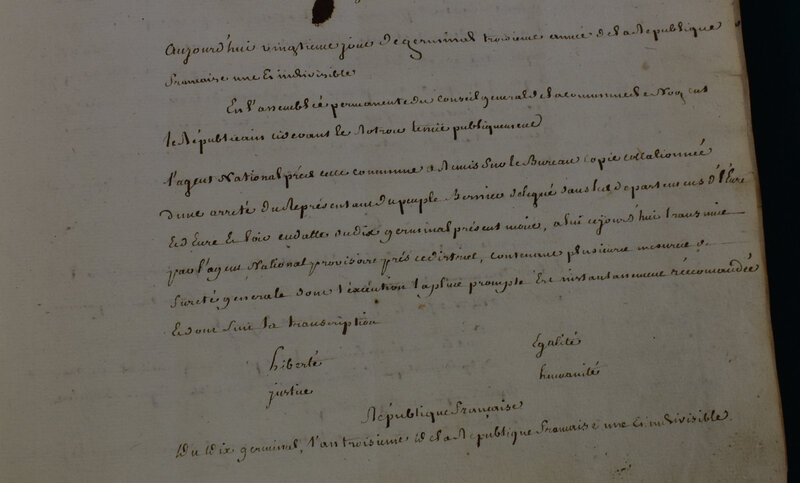 aujourd'hui vingtieme jour de germinal troisieme année de la République
francaise une et indivisible
En l'assemblée permanente du conseil general de la commune de Nogent
le Républicain cidevant le Rotrou tenüe publiquement
l'agent National près cette commune a remis sur le Bureau copie collationnée
d'une arrêté du Représentant du peuple Bernier delegué dans les departemens d'Eure
Et d'Eure Et Loir en datte du dix germinal présent mois, a lui cejourd'hui transmise
par l'agent National provisoire près ce district, contenant plusieurs mesures de
Sureté generale dont l'éxécution la plus prompte Est instantanement réccomandée
Et dont suit la transcription
Liberté Egalité
justice humanité
République francaise
du dix germinal, l'an troisieme de la République francaise une et indivisible